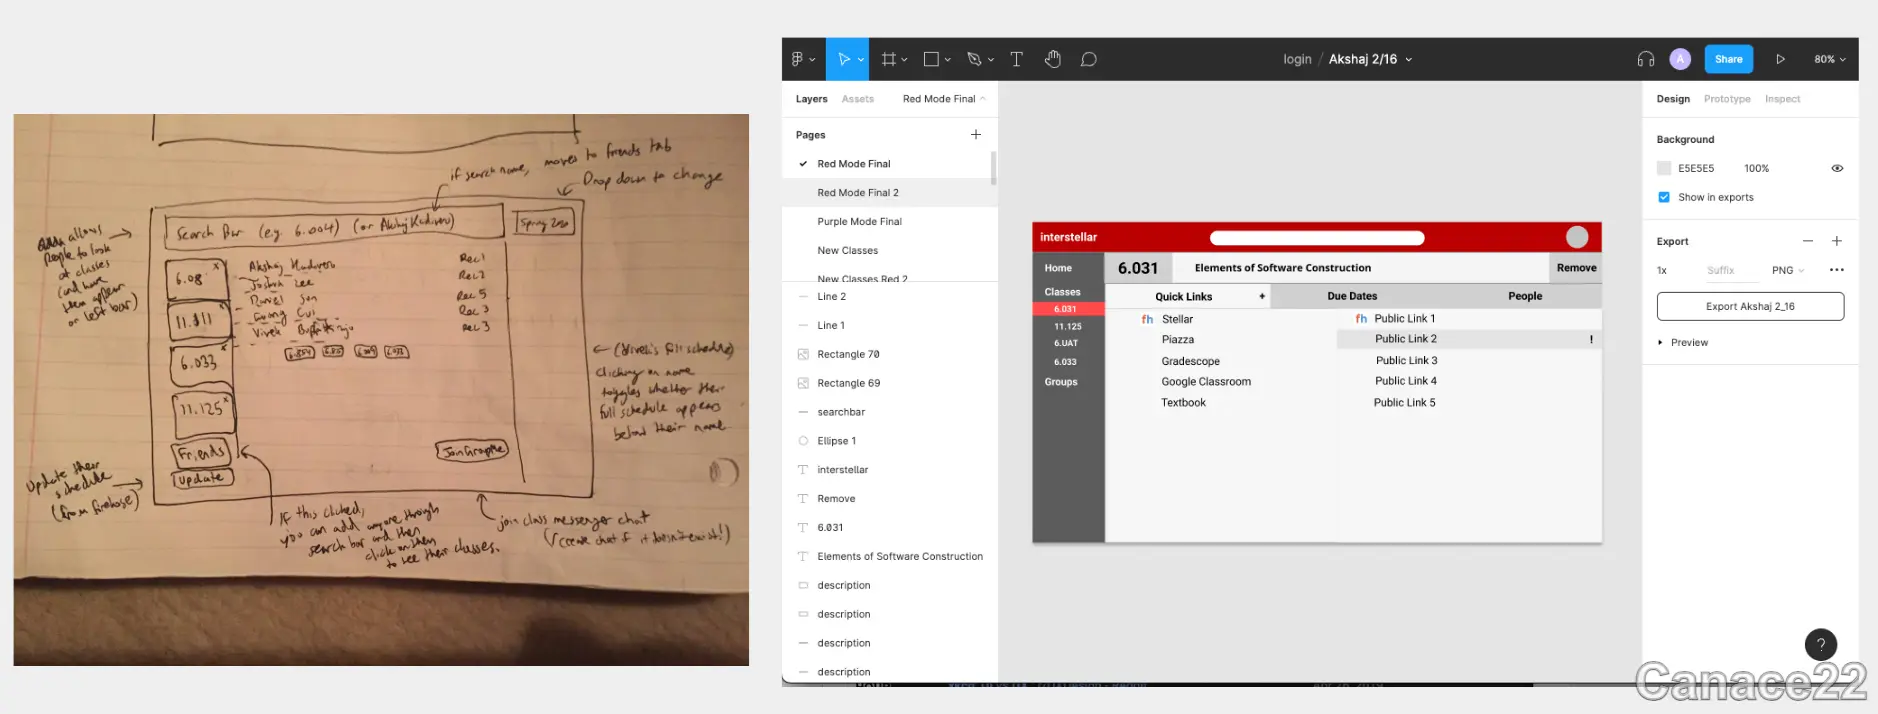 if search name, moves to friends tab
Drop down to change
Search Bar (e.g. 6.004) (or Akshaj Kadiveru)
Spring 2020
allows
people to look
at classes
(and have
them appear
on left bar)
6.08 x
11.111
6.033 x
11.125 x
Friends
Update
Akshaj Kadiveru Rec 1
Joshua Lee Rec 2
Daniel Sun Rec 5
Guang Cui Rec 3
Vivek Rec 3
(Vivek's full schedule)
clicking on name
toggles whether their
full schedule appears
below their name
Join GroupMe
Update their
schedule
(from firehose)
If this clicked,
you can add anyone through
search bar and then
click on them
to see their classes.
join class messenger chat
(create chat if it doesn't exist!)
login / Akshaj 2/16
A
Share
80%
Layers Assets Red Mode Final
Pages
Red Mode Final
Red Mode Final 2
Purple Mode Final
New Classes
New Classes Red 2
Line 2
Line 1
Rectangle 70
Rectangle 69
searchbar
Ellipse 1
interstellar
Remove
6.031
Elements of Software Construction
description
description
description
description
interstellar
Home
Classes
6.031
11.125
6.UAT
6.033
Groups
6.031 Elements of Software Construction Remove
Quick Links + Due Dates People
fh Stellar
Piazza
Gradescope
Google Classroom
Textbook
fh Public Link 1
Public Link 2 !
Public Link 3
Public Link 4
Public Link 5
Design Prototype Inspect
Background
E5E5E5 100%
Show in exports
Export
1x Suffix PNG
Export Akshaj 2_16
Preview
?
Canace22